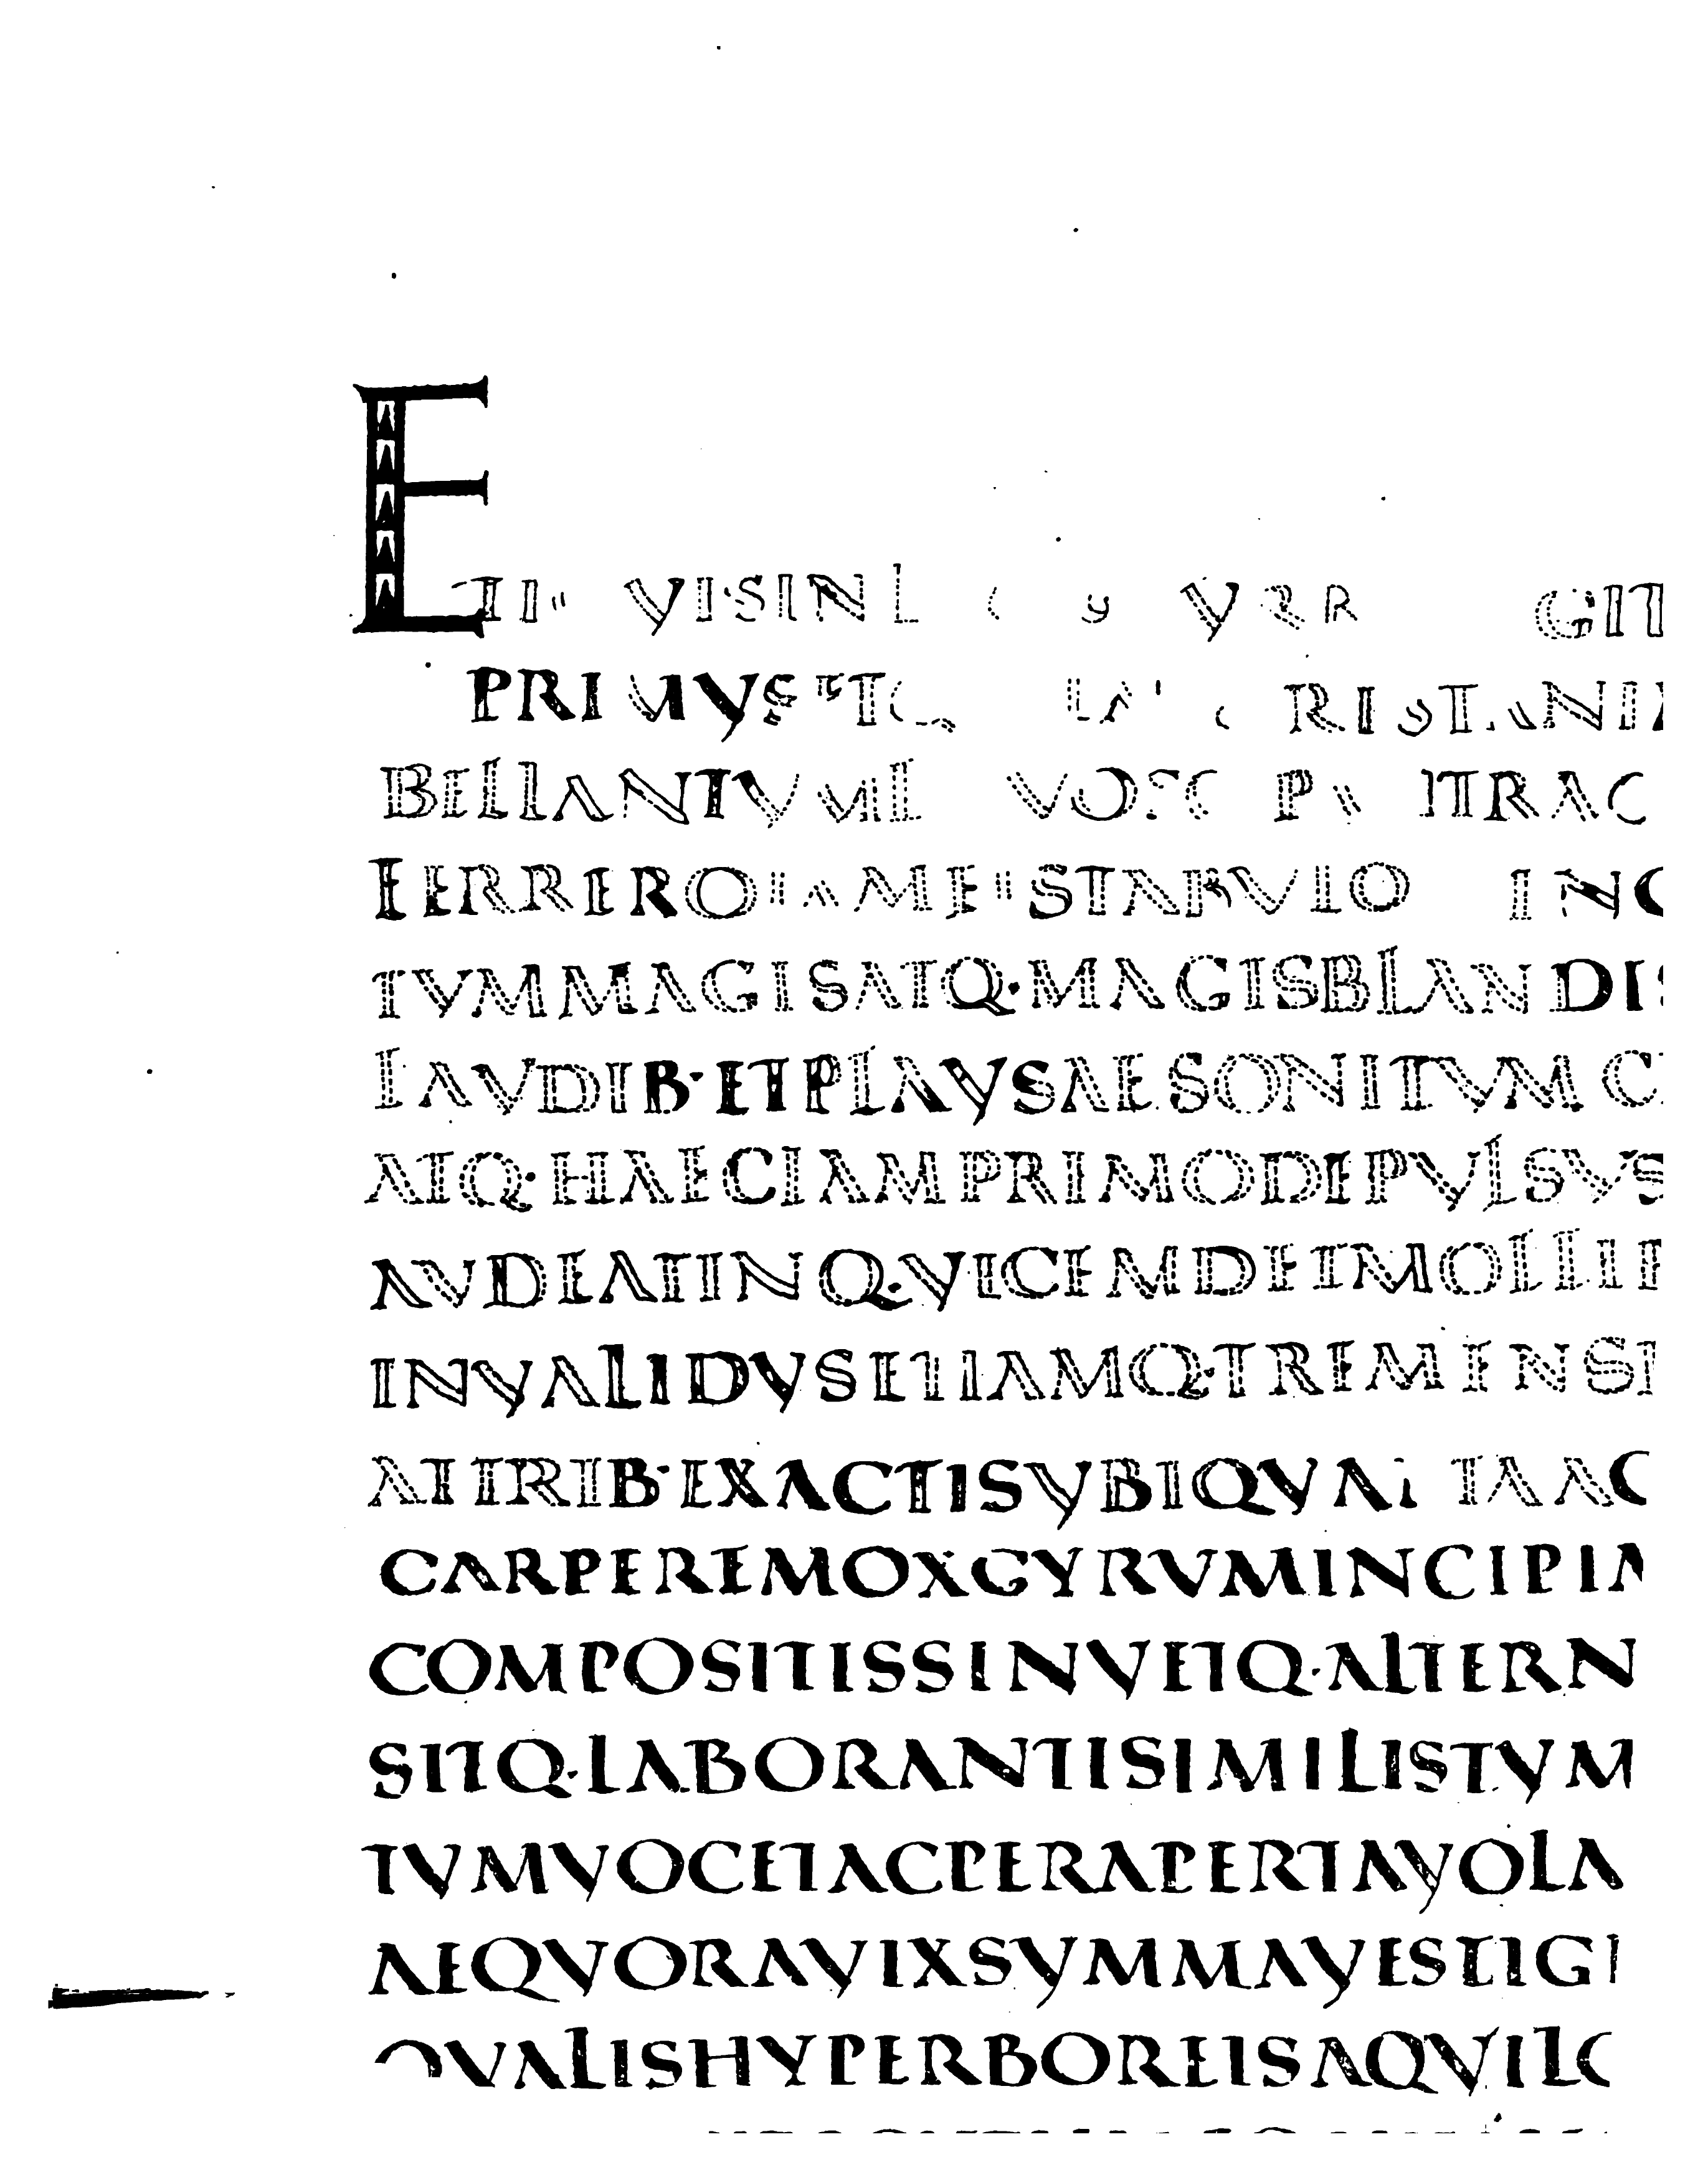 VISIN GIT
PRIMVS
BELLANTVM
TVMMAGISATQ·MAGISBLANDIS
LAVDIB·ETPLAVSAESONITVMC
ATQ·HAECIAMPRIMODEPVLSVS
AVDEATINQ·VICEMDETMOLLIB
INVALIDVSETIAMQ·TREMENSE
ATTRIB·EXACTISVBIQVA TAAC
CARPEREMOXGYRVMINCIPIA
COMPOSITISSINVETQ·ALTERN
SITQ·LABORANTISIMILISTVM
TVMVOCETACPERAPERTAVOLA
AEQVORAVIXSVMMAVESTIGI
QVALISHYPERBOREISAQVILO